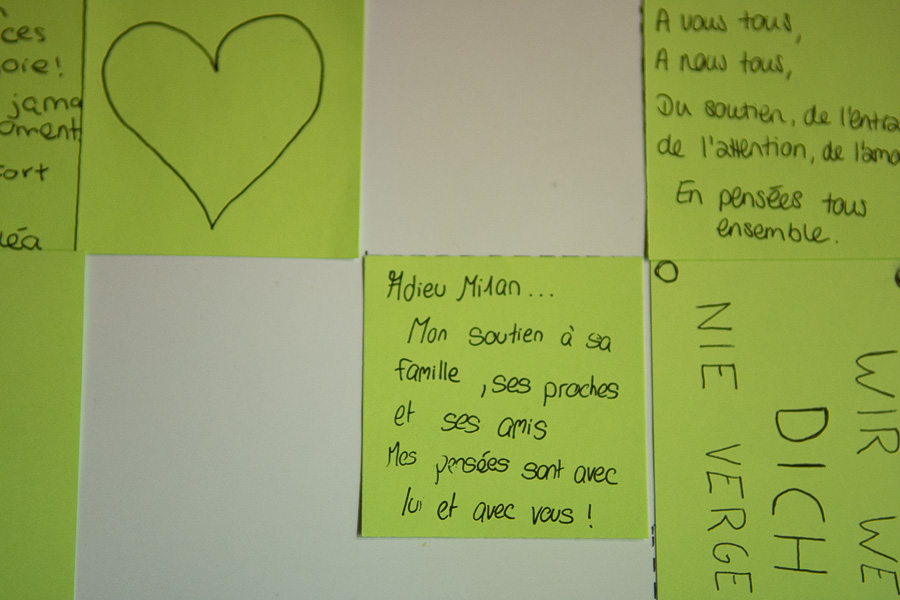 ces
oie!
jama
oment
ort
léa
A vous tous,
A nous tous,
Du soutien, de l'entra
de l'attention, de l'amo
En pensées tous
ensemble.
Adieu Milan...
Mon soutien à sa
famille, ses proches
et ses amis
Mes pensées sont avec
lui et avec vous !
WIR WE
DICH
NIE VERGE